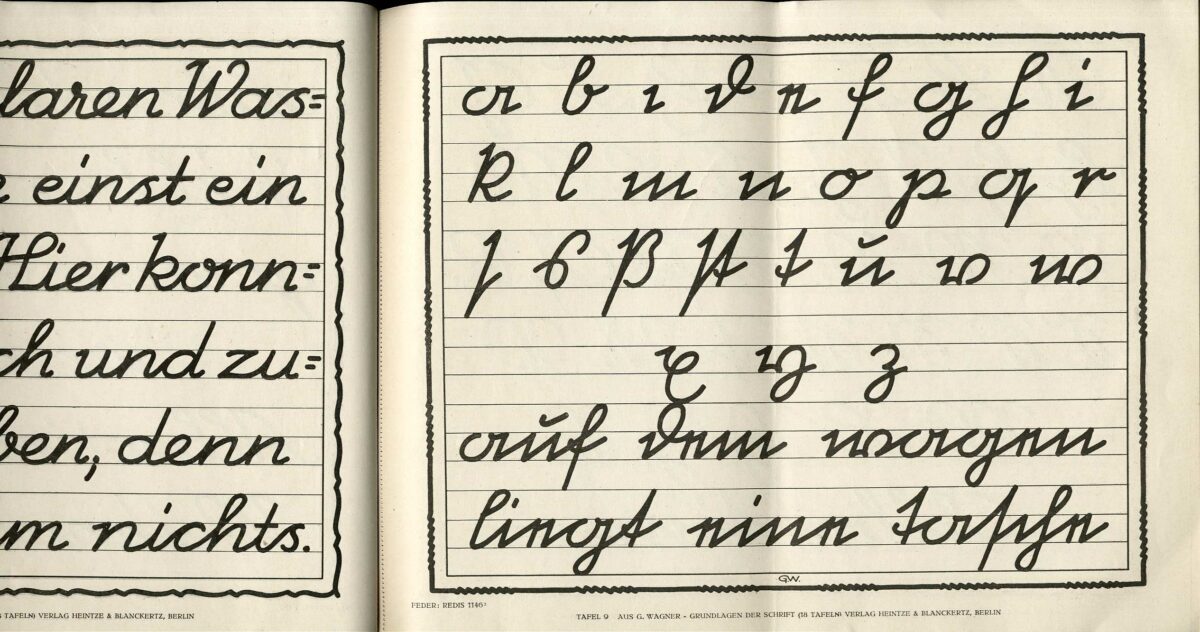 laren Was=
e einst ein
Hier konn=
ch und zu=
ben, denn
m nichts.
TAFELN) VERLAG HEINTZE & BLANCKERTZ, BERLIN
a b c d e f g h i
k l m n o p q r
ſ s ß ſt t u v w
x y z
auf dem wagen
liegt eine taſche
GW.
FEDER: REDIS 1146²
TAFEL 9 AUS G. WAGNER - GRUNDLAGEN DER SCHRIFT (18 TAFELN) VERLAG HEINTZE & BLANCKERTZ, BERLIN